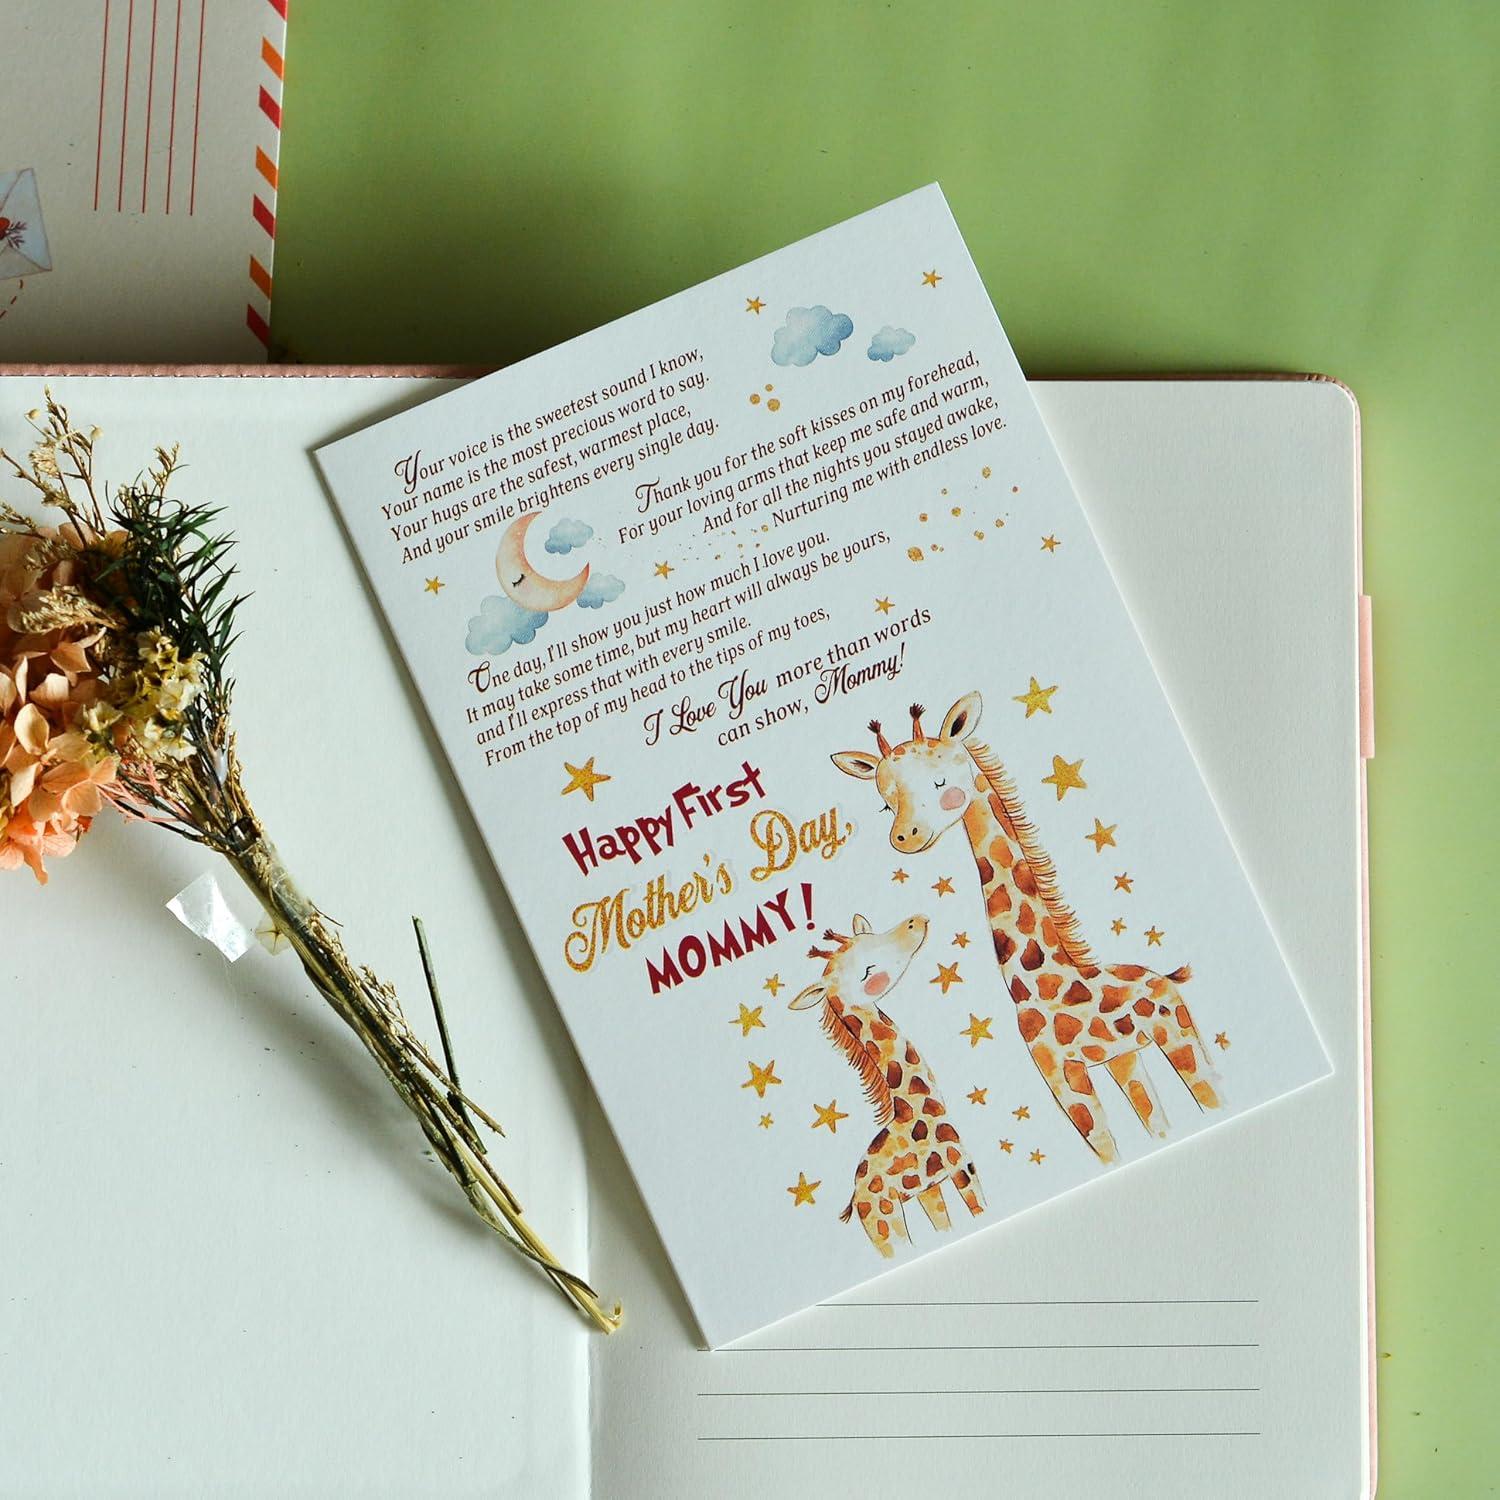 Your voice is the sweetest sound I know,
Your name is the most precious word to say.
Your hugs are the safest, warmest place,
And your smile brightens every single day.
Thank you for the soft kisses on my forehead,
For your loving arms that keep me safe and warm,
And for all the nights you stayed awake,
Nurturing me with endless love.
One day, I'll show you just how much I love you.
It may take some time, but my heart will always be yours,
and I'll express that with every smile.
From the top of my head to the tips of my toes,
I Love You more than words
can show, Mommy!
Happy First
Mother's Day,
MOMMY!